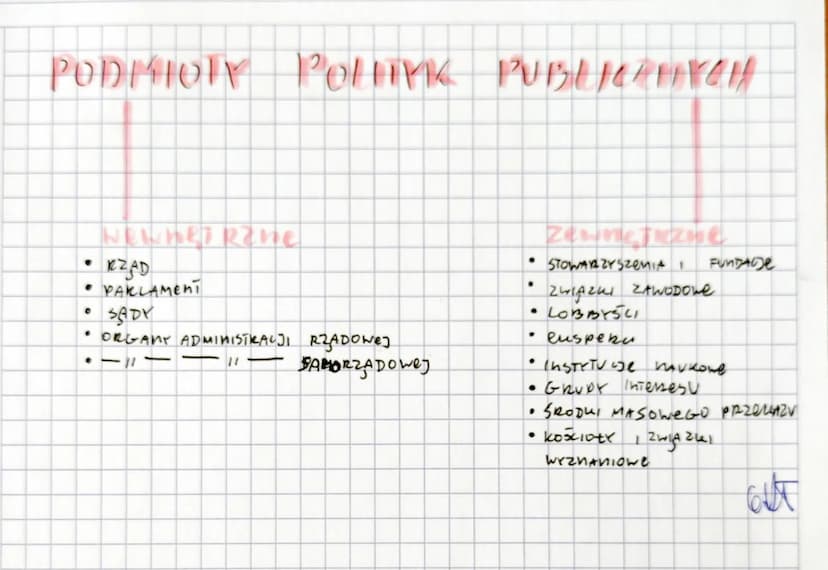 PODMIOTY POLITYK PUBLICZNYCH
WEWNĘTRZNE
• RZĄD
• PARLAMENT
• SĄDY
• ORGANY ADMINISTRACJI RZĄDOWEJ
• — „ — — „ — SAMORZĄDOWEJ
ZEWNĘTRZNE
• STOWARZYSZENIA I FUNDACJE
• ZWIĄZKI ZAWODOWE
• LOBBYŚCI
• EKSPERCI
• INSTYTUCJE NAUKOWE
• GRUPY INTERESU
• ŚRODKI MASOWEGO PRZEKAZU
• KOŚCIOŁY I ZWIĄZKI
WYZNANIOWE